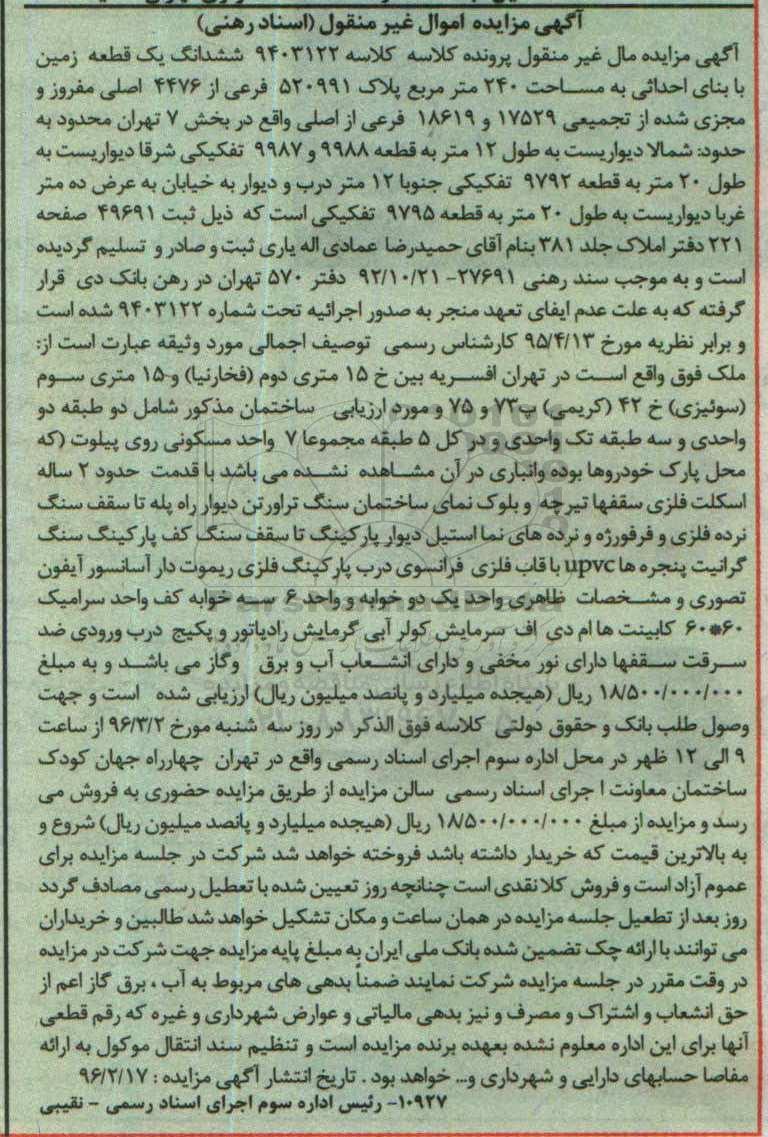 آگهی مزایده اموال غیر منقول (اسناد رهنی)
آگهی مزایده مال غیر منقول پرونده کلاسه کلاسه ۹۴۰۳۱۲۲ ششدانگ یک قطعه زمین
با بنای احداثی به مساحت ۲۴۰ متر مربع پلاک ۵۲۰۹۹۱ فرعی از ۴۴۷۶ اصلی مفروز و
مجزی شده از تجمیعی ۱۷۵۲۹ و ۱۸۶۱۹ فرعی از اصلی واقع در بخش ۷ تهران محدود به
حدود: شمالا دیواریست به طول ۱۲ متر به قطعه ۹۹۸۸ و ۹۹۸۷ تفکیکی شرقا دیواریست به
طول ۲۰ متر به قطعه ۹۷۹۲ تفکیکی جنوبا ۱۲ متر درب و دیوار به خیابان به عرض ده متر
غربا دیواریست به طول ۲۰ متر به قطعه ۹۷۹۵ تفکیکی است که ذیل ثبت ۴۹۶۹۱ صفحه
۲۲۱ دفتر املاک جلد ۳۸۱ بنام آقای حمیدرضا عمادی اله یاری ثبت و صادر و تسلیم گردیده
است و به موجب سند رهنی ۲۷۶۹۱- ۹۲/۱۰/۲۱ دفتر ۵۷۰ تهران در رهن بانک دی قرار
گرفته که به علت عدم ایفای تعهد منجر به صدور اجرائیه تحت شماره ۹۴۰۳۱۲۲ شده است
و برابر نظریه مورخ ۹۵/۴/۱۳ کارشناس رسمی توصیف اجمالی مورد وثیقه عبارت است از:
ملک فوق واقع است در تهران افسریه بین خ ۱۵ متری دوم (فخارنیا) و۱۵ متری سوم
(سوئیزی) خ ۴۲ (کریمی) پ۷۳ و ۷۵ و مورد ارزیابی ساختمان مذکور شامل دو طبقه دو
واحدی و سه طبقه تک واحدی و در کل ۵ طبقه مجموعا ۷ واحد مسکونی روی پیلوت (که
محل پارک خودروها بوده وانباری در آن مشاهده نشده می باشد با قدمت حدود ۲ ساله
اسکلت فلزی سقفها تیرچه و بلوک نمای ساختمان سنگ تراورتن دیوار راه پله تا سقف سنگ
نرده فلزی و فرفورژه و نرده های نما استیل دیوار پارکینگ تا سقف سنگ کف پارکینگ سنگ
گرانیت پنجره ها upvc با قاب فلزی فرانسوی درب پارکینگ فلزی ریموت دار آسانسور آیفون
تصوری و مشخصات ظاهری واحد یک دو خوابه و واحد ۶ سه خوابه کف واحد سرامیک
۶۰*۶۰ کابینت ها ام دی اف سرمایش کولر آبی گرمایش رادیاتور و پکیج درب ورودی ضد
سرقت سقفها دارای نور مخفی و دارای انشعاب آب و برق وگاز می باشد و به مبلغ
۱۸/۵۰۰/۰۰۰/۰۰۰ ریال (هیجده میلیارد و پانصد میلیون ریال) ارزیابی شده است و جهت
وصول طلب بانک و حقوق دولتی کلاسه فوق الذکر در روز سه شنبه مورخ ۹۶/۳/۲ از ساعت
۹ الی ۱۲ ظهر در محل اداره سوم اجرای اسناد رسمی واقع در تهران چهارراه جهان کودک
ساختمان معاونت ا جرای اسناد رسمی سالن مزایده از طریق مزایده حضوری به فروش می
رسد و مزایده از مبلغ ۱۸/۵۰۰/۰۰۰/۰۰۰ ریال (هیجده میلیارد و پانصد میلیون ریال) شروع و
به بالاترین قیمت که خریدار داشته باشد فروخته خواهد شد شرکت در جلسه مزایده برای
عموم آزاد است و فروش کلا نقدی است چنانچه روز تعیین شده با تعطیل رسمی مصادف گردد
روز بعد از تطعیل جلسه مزایده در همان ساعت و مکان تشکیل خواهد شد طالبین و خریداران
می توانند با ارائه چک تضمین شده بانک ملی ایران به مبلغ پایه مزایده جهت شرکت در مزایده
در وقت مقرر در جلسه مزایده شرکت نمایند ضمناً بدهی های مربوط به آب ، برق گاز اعم از
حق انشعاب و اشتراک و مصرف و نیز بدهی مالیاتی و عوارض شهرداری و غیره که رقم قطعی
آنها برای این اداره معلوم نشده بعهده برنده مزایده است و تنظیم سند انتقال موکول به ارائه
مفاصا حسابهای دارایی و شهرداری و... خواهد بود . تاریخ انتشار آگهی مزایده : ۹۶/۲/۱۷
۱۰۹۲۷- رئیس اداره سوم اجرای اسناد رسمی - نقیبی